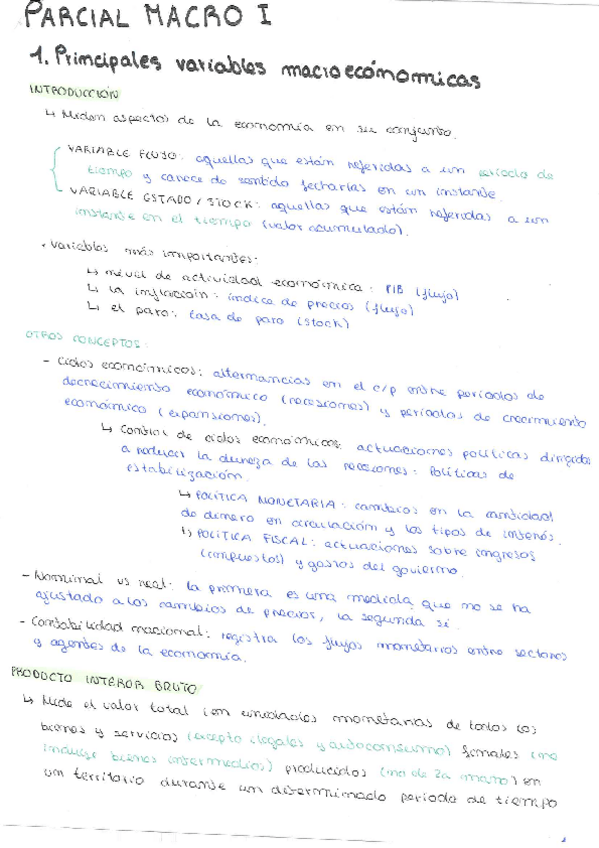 PARCIAL MACRO I
1. Principales variables macroeconómicas
INTRODUCCIÓN
↳ Miden aspectos de la economía en su conjunto.
VARIABLE FLUJO: aquellas que están referidas a un periodo de
tiempo y carece de sentido fecharlas en un instante.
VARIABLE ESTADO / STOCK: aquellas que están referidas a un
instante en el tiempo (valor acumulado).
· Variables más importantes:
↳ nivel de actividad económica: PIB (flujo)
↳ la inflación: índice de precios (flujo)
↳ el paro: tasa de paro (stock)
OTROS CONCEPTOS:
- Ciclos económicos: alternancias en el c/p entre periodos de
decrecimiento económico (recesiones) y periodos de crecimiento
económico (expansiones).
↳ Control de ciclos económicos: actuaciones políticas dirigidas
a reducir la dureza de las recesiones: Políticas de
estabilización.
↳ POLÍTICA MONETARIA: cambios en la cantidad
de dinero en circulación y los tipos de interés.
↳ POLÍTICA FISCAL: actuaciones sobre ingresos
(impuestos) y gastos del gobierno.
- Nominal vs real: la primera es una medida que no se ha
ajustado a los cambios de precios, la segunda sí.
- Contabilidad nacional: registra los flujos monetarios entre sectores
y agentes de la economía.
PRODUCTO INTERIOR BRUTO
↳ Mide el valor total (en unidades monetarias de todos los
bienes y servicios (excepto ilegales y autoconsumo) finales (no
incluye bienes intermedios) producidos (no de 2a mano) en
un territorio durante un determinado periodo de tiempo
1